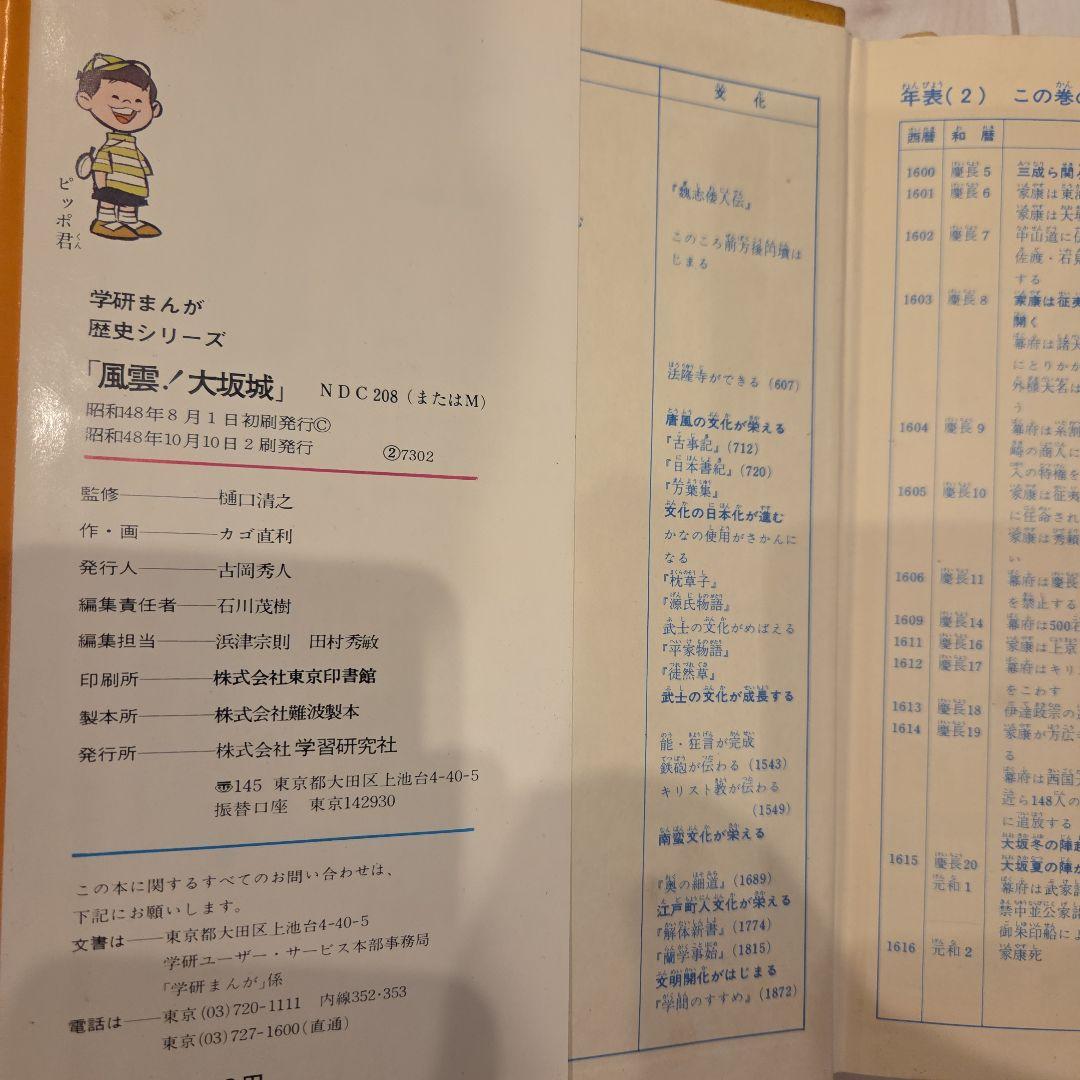 ピッポ君
くん
学研まんが
歴史シリーズ
「風雲!大坂城」 NDC208(またはM)
昭和48年8月1日初刷発行©
昭和48年10月10日2刷発行 ②7302
監修 樋口清之
作・画 カゴ直利
発行人 古岡秀人
編集責任者 石川茂樹
編集担当 浜津宗則 田村秀敏
印刷所 株式会社東京印書館
製本所 株式会社難波製本
発行所 株式会社学習研究社
〠145 東京都大田区上池台4-40-5
振替口座 東京142930
この本に関するすべてのお問い合わせは、
下記にお願いします。
文書は 東京都大田区上池台4-40-5
学研ユーザー・サービス本部事務局
「学研まんが」係
電話は 東京(03)720-1111 内線352・353
東京(03)727-1600(直通)
文化
『魏志倭人伝』
このころ前方後円墳は
じまる
法隆寺ができる(607)
唐風の文化が栄える
『古事記』(712)
『日本書紀』(720)
『万葉集』
文化の日本化が進む
かなの使用がさかんに
なる
『枕草子』
『源氏物語』
武士の文化がめばえる
『平家物語』
『徒然草』
武士の文化が成長する
能・狂言が完成
鉄砲が伝わる(1543)
キリスト教が伝わる
(1549)
南蛮文化が栄える
『奥の細道』(1689)
江戸町人文化が栄える
『解体新書』(1774)
『蘭学事始』(1815)
文明開化がはじまる
『学問のすすめ』(1872)
年表(2) この巻の
西暦 和暦
1600 慶長5 三成ら関
1601 慶長6 家康は東海
家康は大坂
1602 慶長7 中山道に
佐渡・石見
する
1603 慶長8 家康は征夷
開く
幕府は諸大
にとりかか
外様大名は
う
1604 慶長9 幕府は糸割
崎の商人に
人の特権を
1605 慶長10 家康は征夷
に任命され
家康は秀頼
い
1606 慶長11 幕府は慶長
を禁止する
1609 慶長14 幕府は500石
1611 慶長16 家康は上京
1612 慶長17 幕府はキリ
をこわす
1613 慶長18 伊達政宗の
1614 慶長19 家康が方広
る
幕府は西国
近ら148人の
に追放する
大坂冬の陣
1615 慶長20 大坂夏の陣が
元和1 幕府は武家諸
禁中並公家諸
御朱印船に
1616 元和2 家康死